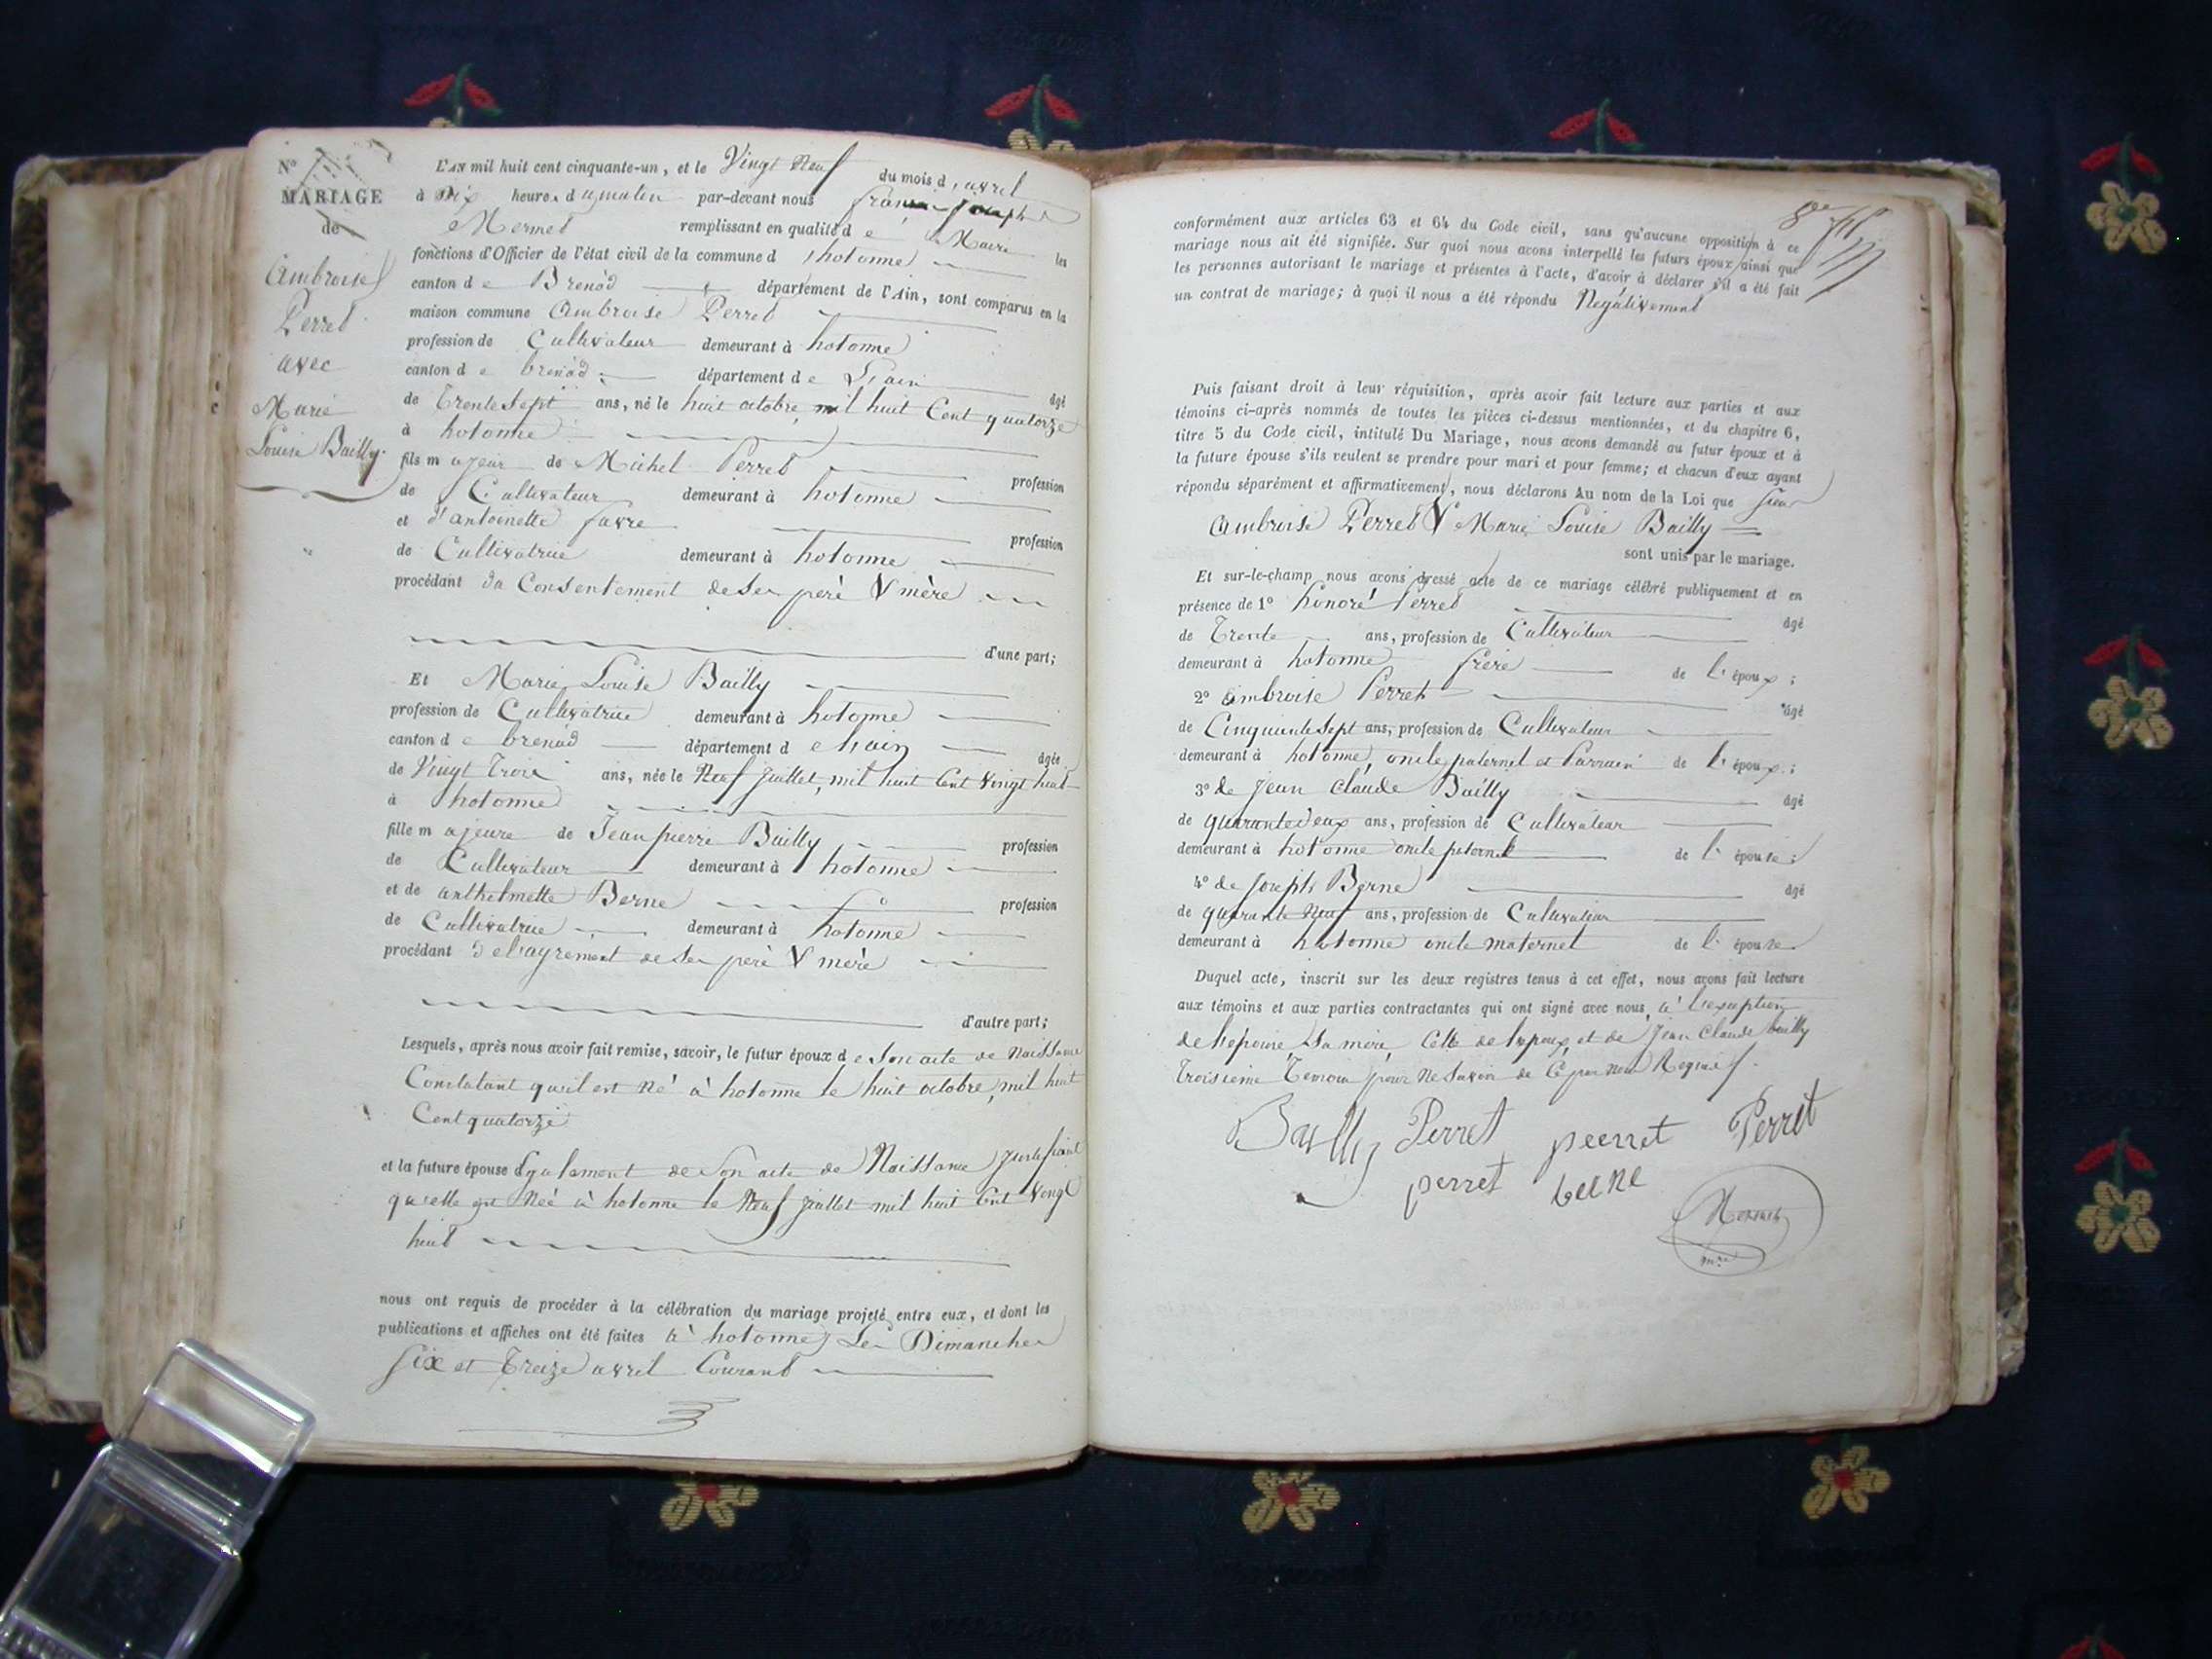 N°
MARIAGE
de
Ambroise
Perret
avec
Marie
Louise Bailly
L'AN mil huit cent cinquante-un, et le Vingt Neuf du mois d'avril
à dix heures du matin par-devant nous françois joseph
Mermet remplissant en qualité de Maire les
fonctions d'Officier de l'état civil de la commune d'hotonne
canton de Brenod département de l'Ain, sont comparus en la
maison commune Ambroise Perret
profession de Cultivateur demeurant à hotonne
canton de brenod département de L'ain âgé
de Trente Sept ans, né le huit octobre mil huit Cent quatorze
à hotonne
fils majeur de Michel Perret profession
de Cultivateur demeurant à hotonne
et d'antoinette favre profession
de Cultivatrice demeurant à hotonne
procédant du Consentement de ses père & mère
d'une part;
Et Marie Louise Bailly
profession de Cultivatrice demeurant à hotonne
canton de brenod département de l'ain âgée
de Vingt Trois ans, née le Neuf juillet, mil huit Cent Vingt huit
à hotonne
fille majeure de Jean pierre Bailly profession
de Cultivateur demeurant à hotonne
et de anthelmette Berne profession
de Cultivatrice demeurant à hotonne
procédant de l'agrément de ses père & mère
d'autre part;
Lesquels, après nous avoir fait remise, savoir, le futur époux de Son acte de Naissance
Constatant qu'il est Né à hotonne le huit octobre, mil huit
Cent quatorze
et la future épouse Egalement de Son acte de Naissance justifiant
qu'elle est Née à hotonne le Neuf juillet mil huit Cent Vingt
huit
nous ont requis de procéder à la célébration du mariage projeté entre eux, et dont les
publications et affiches ont été faites à hotonne Les Dimanches
Six et Treize avril Courant
conformément aux articles 63 et 64 du Code civil, sans qu'aucune opposition à ce
mariage nous ait été signifiée. Sur quoi nous avons interpellé les futurs époux ainsi que
les personnes autorisant le mariage et présentes à l'acte, d'avoir à déclarer s'il a été fait
un contrat de mariage; à quoi il nous a été répondu Négativement
Puis faisant droit à leur réquisition, après avoir fait lecture aux parties et aux
témoins ci-après nommés de toutes les pièces ci-dessus mentionnées, et du chapitre 6,
titre 5 du Code civil, intitulé Du Mariage, nous avons demandé au futur époux et à
la future épouse s'ils veulent se prendre pour mari et pour femme; et chacun d'eux ayant
répondu séparément et affirmativement, nous déclarons Au nom de la Loi que
Ambroise Perret & Marie Louise Bailly
sont unis par le mariage.
Et sur-le-champ nous avons dressé acte de ce mariage célébré publiquement et en
présence de 1° honoré Perret âgé
de Trente ans, profession de Cultivateur
demeurant à hotonne frère de l'époux;
2° ambroise Perret âgé
de Cinquante Sept ans, profession de Cultivateur
demeurant à hotonne, oncle paternel et Parrain de l'époux;
3° de jean claude Bailly âgé
de quarante deux ans, profession de Cultivateur
demeurant à hotonne oncle paternel de l'épouse;
4° de joseph Berne âgé
de quarante Neuf ans, profession de Cultivateur
demeurant à hotonne oncle maternel de l'épouse
Duquel acte, inscrit sur les deux registres tenus à cet effet, nous avons fait lecture
aux témoins et aux parties contractantes qui ont signé avec nous, à l'exception
de l'epouse, Sa mère, Celle de l'epoux et de Jean Claude bailly
Troisième Temoin pour Ne Savoir de Ce par Nous Requis
Bailly Perret peerret Perret
perret berne
Mermet
mre